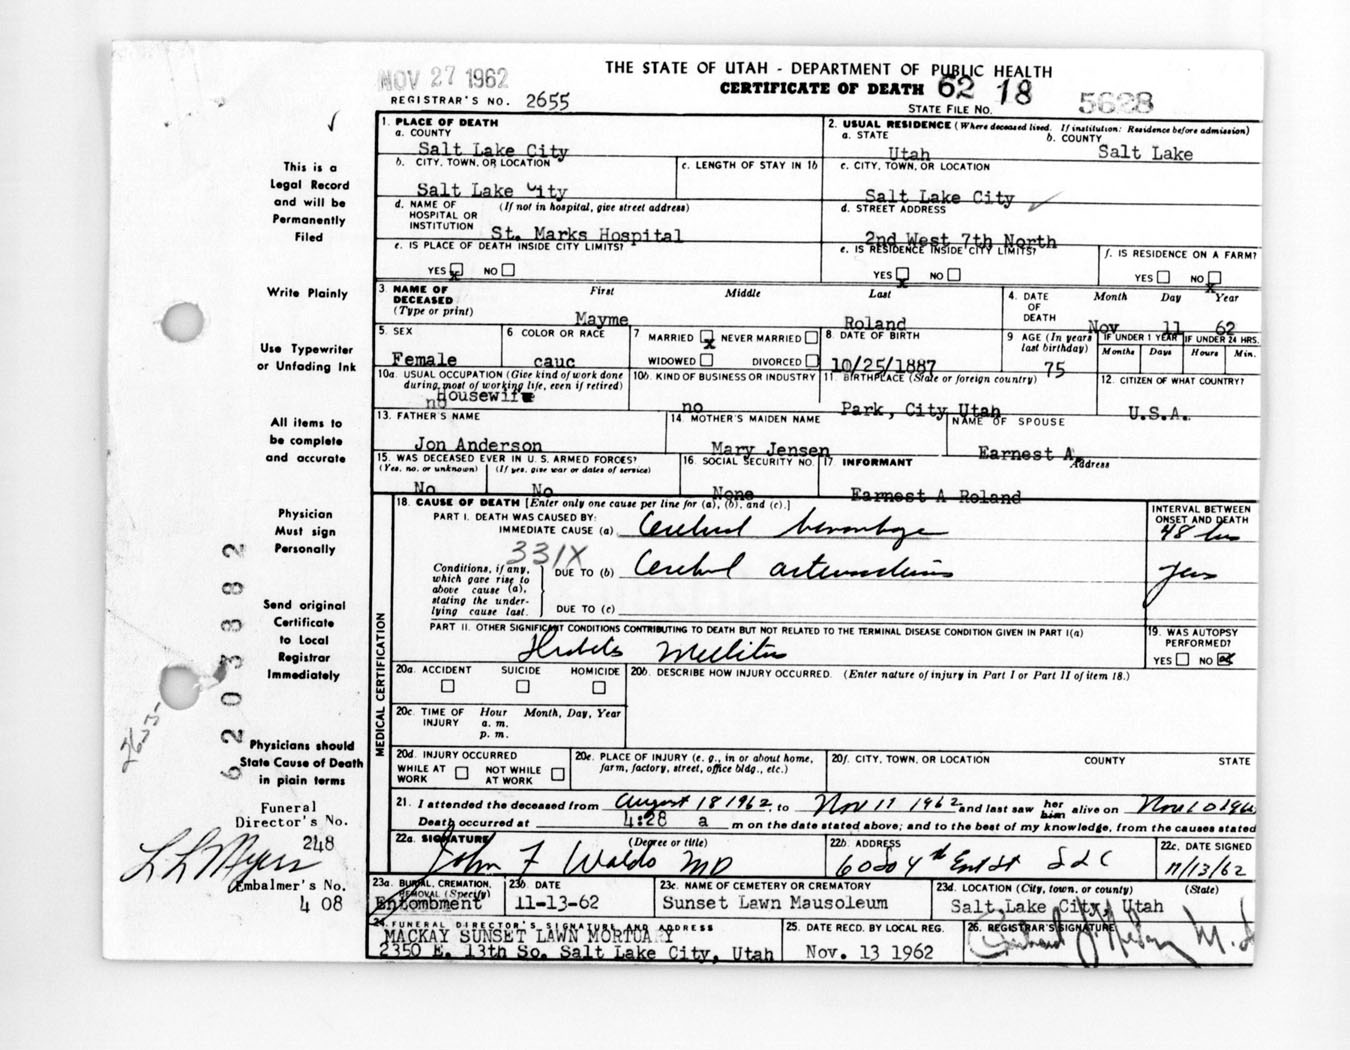 NOV 27 1962
THE STATE OF UTAH - DEPARTMENT OF PUBLIC HEALTH
CERTIFICATE OF DEATH 62 18
REGISTRAR'S NO. 2655
STATE FILE NO. 5628
This is a
Legal Record
and will be
Permanently
Filed
Write Plainly
Use Typewriter
or Unfading Ink
All items to
be complete
and accurate
Physician
Must sign
Personally
Send original
Certificate
to Local
Registrar
Immediately
Physicians should
State Cause of Death
in plain terms
Funeral
Director's No.
248
L L Myers
Embalmer's No.
4 08
62 203382
2655
1. PLACE OF DEATH
a. COUNTY
Salt Lake City
2. USUAL RESIDENCE (Where deceased lived. If institution: Residence before admission)
a. STATE b. COUNTY
Utah Salt Lake
b. CITY, TOWN, OR LOCATION
Salt Lake City
c. LENGTH OF STAY IN 1b
c. CITY, TOWN, OR LOCATION
Salt Lake City
d. NAME OF (If not in hospital, give street address)
HOSPITAL OR
INSTITUTION St. Marks Hospital
d. STREET ADDRESS
2nd West 7th North
e. IS PLACE OF DEATH INSIDE CITY LIMITS?
YES x NO
e. IS RESIDENCE INSIDE CITY LIMITS?
YES x NO
f. IS RESIDENCE ON A FARM?
YES NO x
3. NAME OF DECEASED (Type or print)
First Middle Last
Mayme Roland
4. DATE OF DEATH
Month Day Year
Nov 11 62
5. SEX
Female
6 COLOR OR RACE
cauc
7 MARRIED x NEVER MARRIED
WIDOWED DIVORCED
8. DATE OF BIRTH
10/25/1887
9 AGE (In years last birthday)
75
IF UNDER 1 YEAR
Months Days
IF UNDER 24 HRS.
Hours Min.
10a. USUAL OCCUPATION (Give kind of work done
during most of working life, even if retired)
Housewife
no
10b. KIND OF BUSINESS OR INDUSTRY
no
11. BIRTHPLACE (State or foreign country)
Park, City Utah
12. CITIZEN OF WHAT COUNTRY?
U.S.A.
13. FATHER'S NAME
Jon Anderson
14. MOTHER'S MAIDEN NAME
Mary Jensen
NAME OF SPOUSE
Earnest A.
15. WAS DECEASED EVER IN U. S. ARMED FORCES?
(Yes, no, or unknown) (If yes, give war or dates of service)
No No
16. SOCIAL SECURITY NO.
None
17. INFORMANT Address
Earnest A Roland
MEDICAL CERTIFICATION
18. CAUSE OF DEATH [Enter only one cause per line for (a), (b), and (c).]
PART I. DEATH WAS CAUSED BY:
IMMEDIATE CAUSE (a) Cerebral hemorrhage
INTERVAL BETWEEN
ONSET AND DEATH
48 hrs
331X
Conditions, if any,
which gave rise to
above cause (a),
stating the under-
lying cause last.
DUE TO (b) Cerebral arteriosclerosis
yrs
DUE TO (c)
PART II. OTHER SIGNIFICANT CONDITIONS CONTRIBUTING TO DEATH BUT NOT RELATED TO THE TERMINAL DISEASE CONDITION GIVEN IN PART I(a)
Diabetes Mellitus
19. WAS AUTOPSY
PERFORMED?
YES NO x
20a. ACCIDENT SUICIDE HOMICIDE
20b. DESCRIBE HOW INJURY OCCURRED. (Enter nature of injury in Part I or Part II of item 18.)
20c. TIME OF INJURY
Hour Month, Day, Year
a. m.
p. m.
20d. INJURY OCCURRED
WHILE AT WORK NOT WHILE AT WORK
20e. PLACE OF INJURY (e. g., in or about home,
farm, factory, street, office bldg., etc.)
20f. CITY, TOWN, OR LOCATION COUNTY STATE
21. I attended the deceased from August 18 1962, to Nov 11 1962 and last saw her him alive on Nov 10 1962
Death occurred at 4:28 a m on the date stated above; and to the best of my knowledge, from the causes stated
22a. SIGNATURE (Degree or title)
John F Waldo MD
22b. ADDRESS
22c. DATE SIGNED
11/13/62
23a. BURIAL, CREMATION,
REMOVAL (Specify)
Entombment
23b. DATE
11-13-62
23c. NAME OF CEMETERY OR CREMATORY
Sunset Lawn Mausoleum
23d. LOCATION (City, town, or county) (State)
Salt Lake City, Utah
24. FUNERAL DIRECTOR'S SIGNATURE AND ADDRESS
MACKAY SUNSET LAWN MORTUARY
2350 E. 13th So. Salt Lake City, Utah
25. DATE RECD. BY LOCAL REG.
Nov. 13 1962
26. REGISTRAR'S SIGNATURE